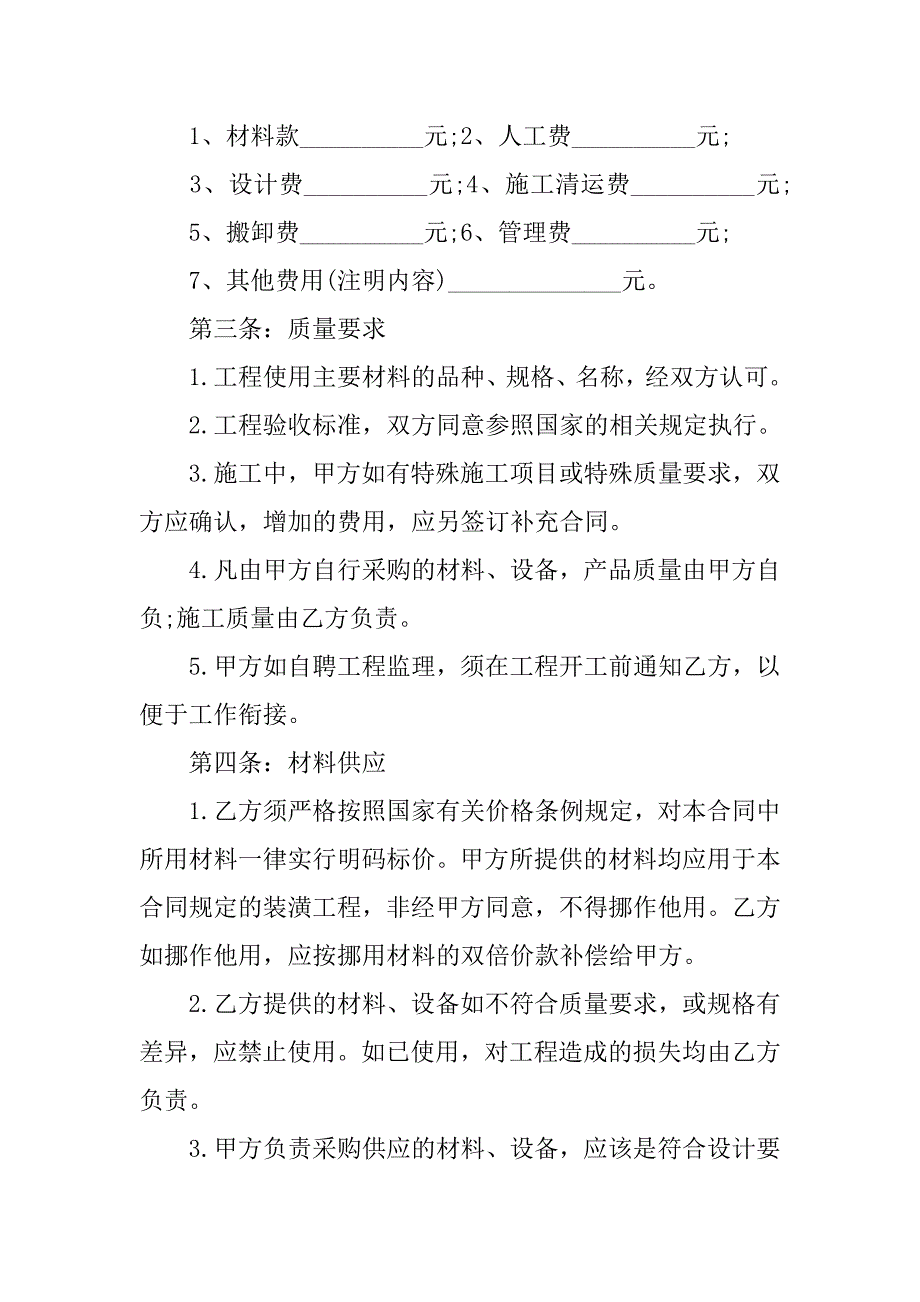 1、材料款__________元;2、人工费__________元;
3、设计费__________元;4、施工清运费__________元;
5、搬卸费__________元;6、管理费__________元;
7、其他费用(注明内容)______________元。
第三条：质量要求
1.工程使用主要材料的品种、规格、名称，经双方认可。
2.工程验收标准，双方同意参照国家的相关规定执行。
3.施工中，甲方如有特殊施工项目或特殊质量要求，双
方应确认，增加的费用，应另签订补充合同。
4.凡由甲方自行采购的材料、设备，产品质量由甲方自
负;施工质量由乙方负责。
5.甲方如自聘工程监理，须在工程开工前通知乙方，以
便于工作衔接。
第四条：材料供应
1.乙方须严格按照国家有关价格条例规定，对本合同中
所用材料一律实行明码标价。甲方所提供的材料均应用于本
合同规定的装潢工程，非经甲方同意，不得挪作他用。乙方
如挪作他用，应按挪用材料的双倍价款补偿给甲方。
2.乙方提供的材料、设备如不符合质量要求，或规格有
差异，应禁止使用。如已使用，对工程造成的损失均由乙方
负责。
3.甲方负责采购供应的材料、设备，应该是符合设计要